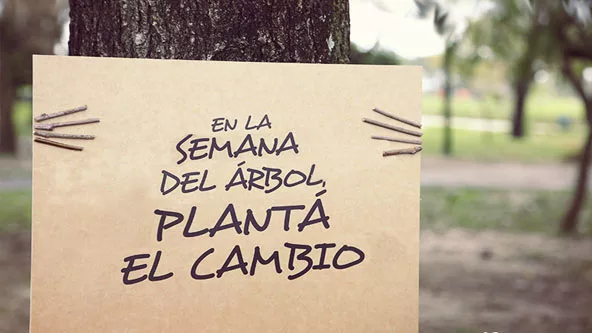 EN LA
SEMANA
DEL ÁRBOL,
PLANTÁ
EL CAMBIO